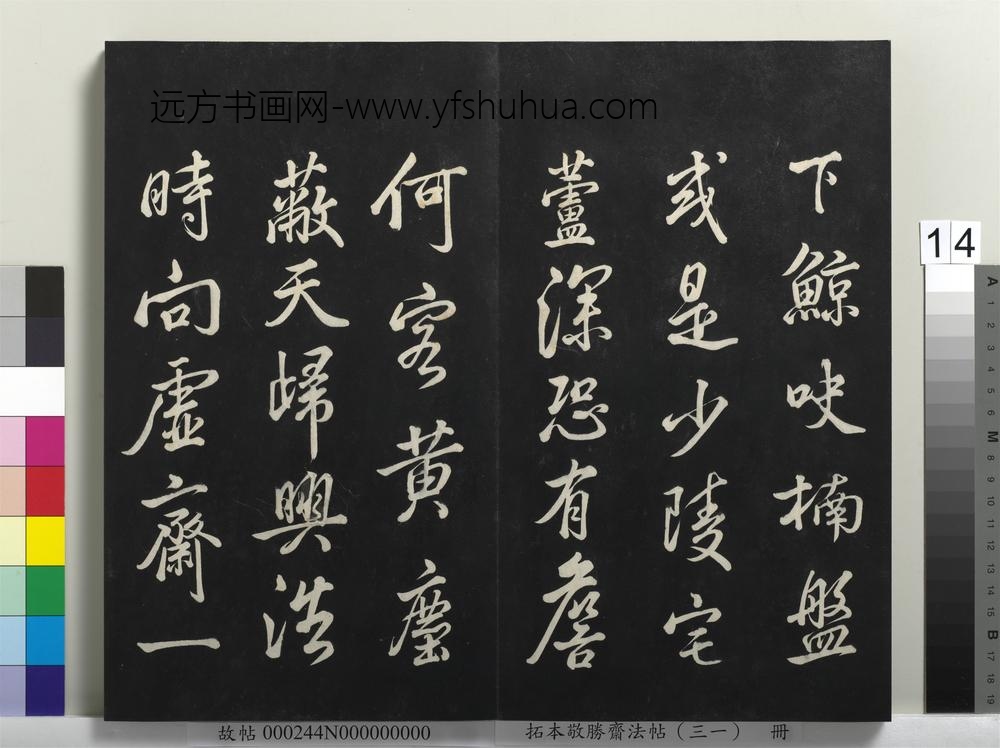 远方书画网-www.yfshuhua.com
下鯨吷楠盤
或是少陵宅
蘆深恐有詹
何客黃塵
蔽天歸興浩
時向虛齋一
14
故帖 000244N000000000
拓本敬勝齋法帖（三一） 冊
A 1 2 3 4 5 6 M 8 9 10 11 12 13 14 15 B 17 18 19